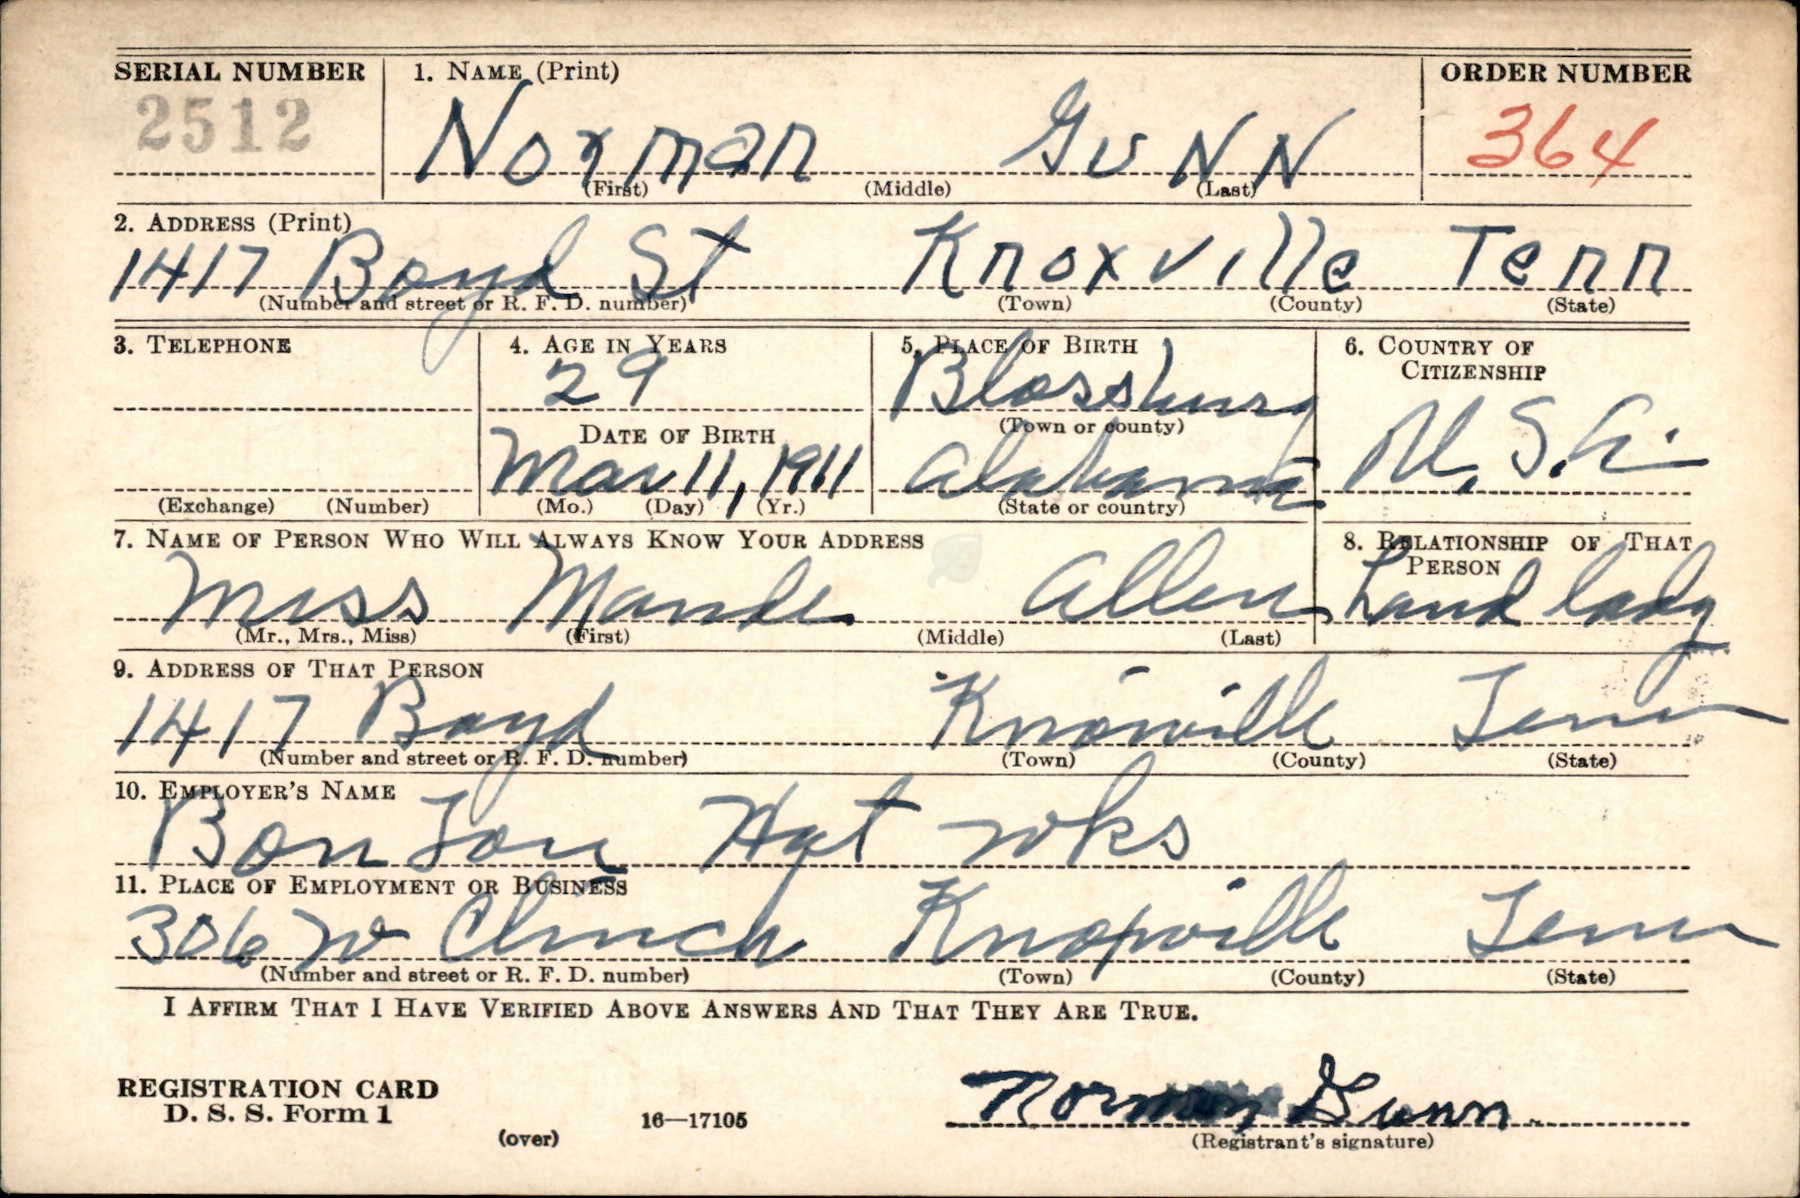 SERIAL NUMBER 1. NAME (Print) ORDER NUMBER
2512 Norman GUNN 364
(First) (Middle) (Last)
2. ADDRESS (Print)
1417 Boyd St Knoxville Tenn
(Number and street or R. F. D. number) (Town) (County) (State)
3. TELEPHONE 4. AGE IN YEARS 5. PLACE OF BIRTH 6. COUNTRY OF CITIZENSHIP
29 Blossburg
DATE OF BIRTH (Town or county)
Mar 11, 1911 Alabama U.S.A.
(Exchange) (Number) (Mo.) (Day) (Yr.) (State or country)
7. NAME OF PERSON WHO WILL ALWAYS KNOW YOUR ADDRESS 8. RELATIONSHIP OF THAT PERSON
Miss Maude Allen Land lady
(Mr., Mrs., Miss) (First) (Middle) (Last)
9. ADDRESS OF THAT PERSON
1417 Boyd Knoxville Tenn
(Number and street or R. F. D. number) (Town) (County) (State)
10. EMPLOYER'S NAME
Bon Ton Hat wks
11. PLACE OF EMPLOYMENT OR BUSINESS
306 W Clinch Knoxville Tenn
(Number and street or R. F. D. number) (Town) (County) (State)
I AFFIRM THAT I HAVE VERIFIED ABOVE ANSWERS AND THAT THEY ARE TRUE.
REGISTRATION CARD
D. S. S. Form 1
(over) 16—17105
Norman Gunn.
(Registrant's signature)